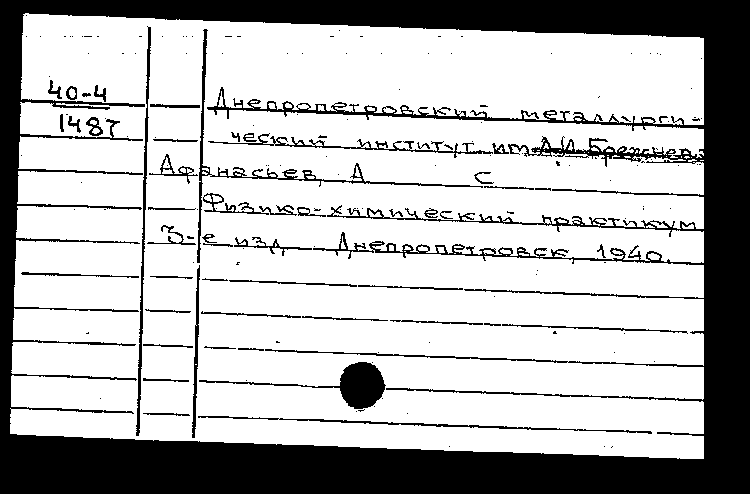 40-4
1487
Днепропетровский металлурги-
ческий институт им. Л.И. Брежнева
Афанасьев, А С
Физико-химический практикум
3-е изд Днепропетровск, 1940.